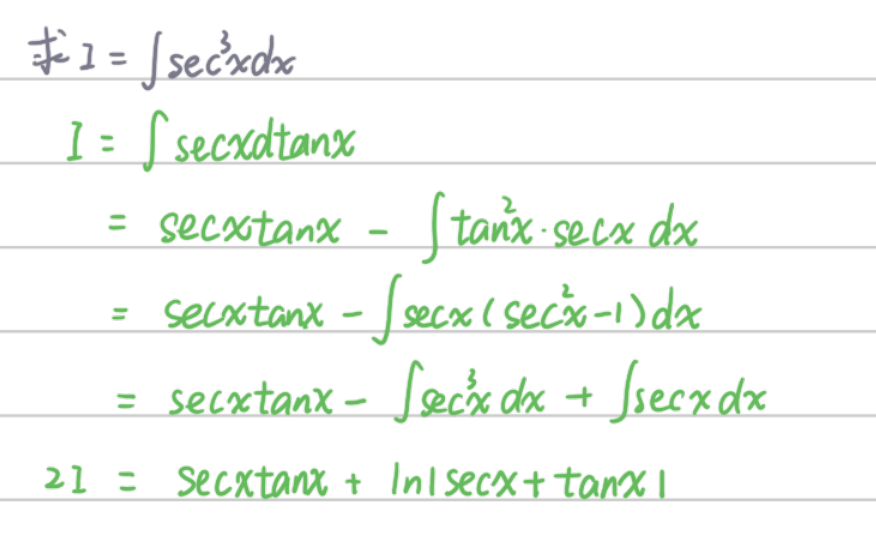 求 I = ∫sec³xdx
I = ∫secxdtanx
= secxtanx - ∫tan²x·secx dx
= secxtanx - ∫secx(sec²x-1)dx
= secxtanx - ∫sec³x dx + ∫secx dx
2I = secxtanx + ln|secx+tanx|